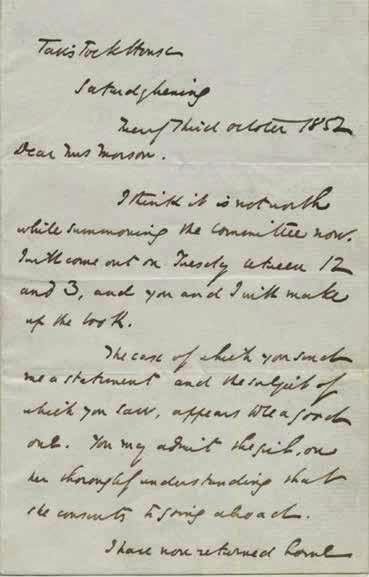 Tavistock House
Saturday Evening
Twenty Third October 1852
Dear Mrs Morson.
I think it is not worth
while summoning the Committee now.
I will come out on Tuesday between 12
and 3, and you and I will make
up the book.
The case of which you send
me a statement and the subject of
which you saw, appears to be a good
one. You may admit the girl, on
her thoroughly understanding that
she consents to going abroad.
I have now returned home